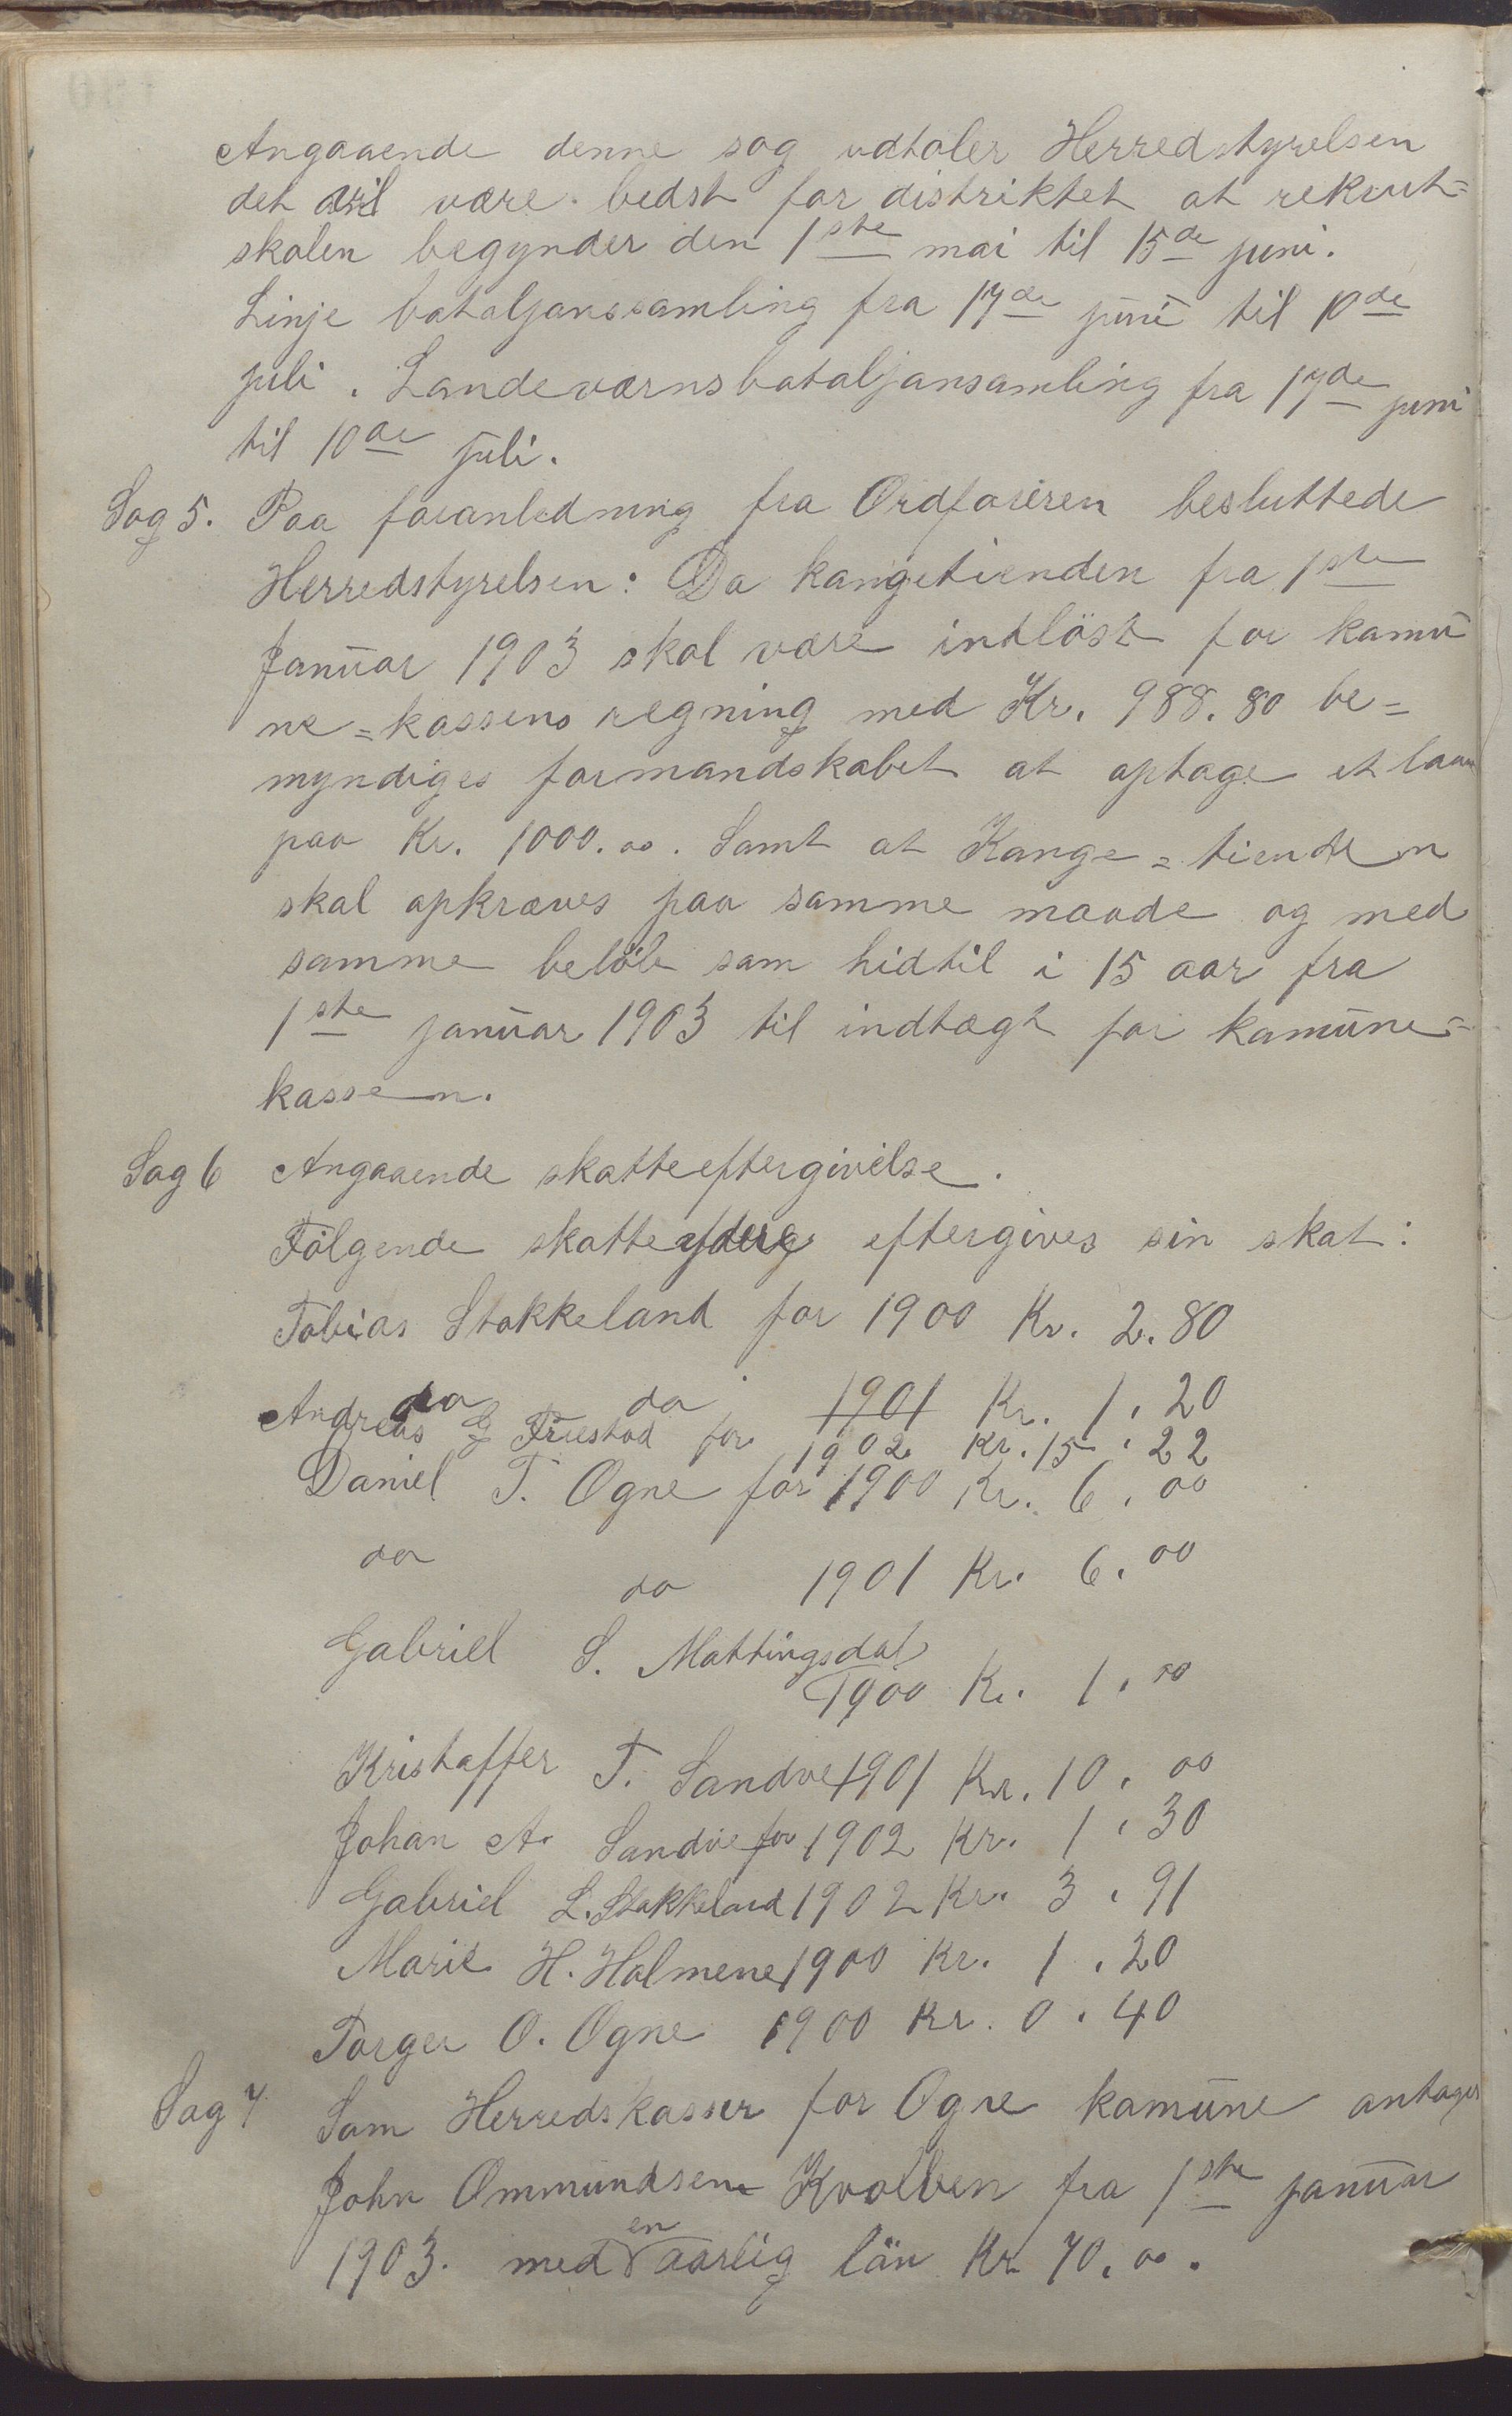 Angaaende denne sag udtaler Herredstyrelsen
det vil være bedst for distriktet at rekrut=
skolen begynder den 1ste mai til 15de juni.
Linje bataljonssamling fra 17de juni til 10de
juli. Landeværnsbataljonsamling fra 17de juni
til 10de juli.
Sag 5. Paa foranledning fra Ordføreren besluttede
Herredstyrelsen: Da kongetienden fra 1ste
Januar 1903 skal være indløst for komu
ne=kassens regning med Kr. 988.80 be=
myndiges formandskabet at optage et laan
paa Kr. 1000.00. Samt at Konge=tienden
skal opkræves paa samme maade og med
samme beløb som hidtil i 15 aar fra
1ste januar 1903 til indtægt for komune=
kassen.
Sag 6 Angaaende skatteeftergivelse.
Følgende skatteydere eftergives sin skat:
Tobias Stokkeland for 1900 Kr. 2.80
do do 1901 Kr. 1.20
Andreas G Friestad for 1902 Kr. 15.22
Daniel T. Ogne for 1900 Kr. 6.00
do do 1901 Kr. 6.00
Gabriel S. Mattingsdal
1900 Kr. 1.00
Kristoffer T. Sandve 1901 Kr. 10.00
Johan A. Sandve for 1902 Kr. 1.30
Gabriel L. Stokkeland 1902 Kr. 3.91
Marie H. Holmene 1900 Kr. 1.20
Torger O. Ogne 1900 Kr. 0.40
Sag 7 Som Herredskasser for Ogne komune antages
John Ommundsen Kvalben fra 1ste januar
1903. med en aarlig løn Kr 70.00.